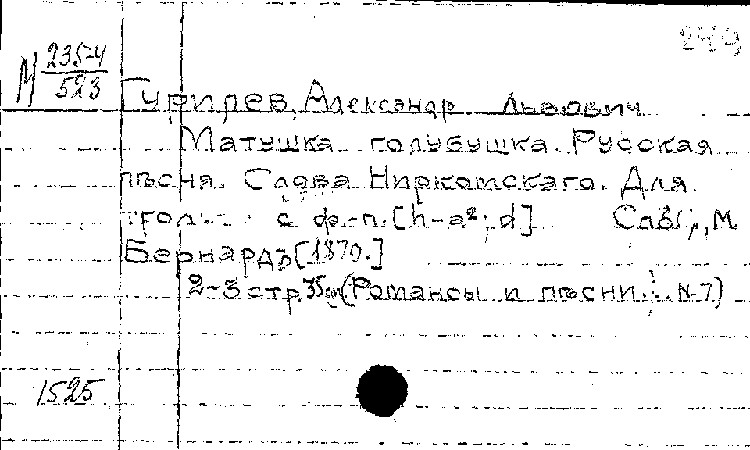 249
М 235-4
523
Гурилев, Александр Львович
Матушка голубушка. Русская
пѣсня. Слова Ниркомскаго. Для
с ф.-п. [h-a²; d] СПб, М.
Бернардъ [1870.]
2-3 стр. 35 см (Романсы и пѣсни... № 7)
1525